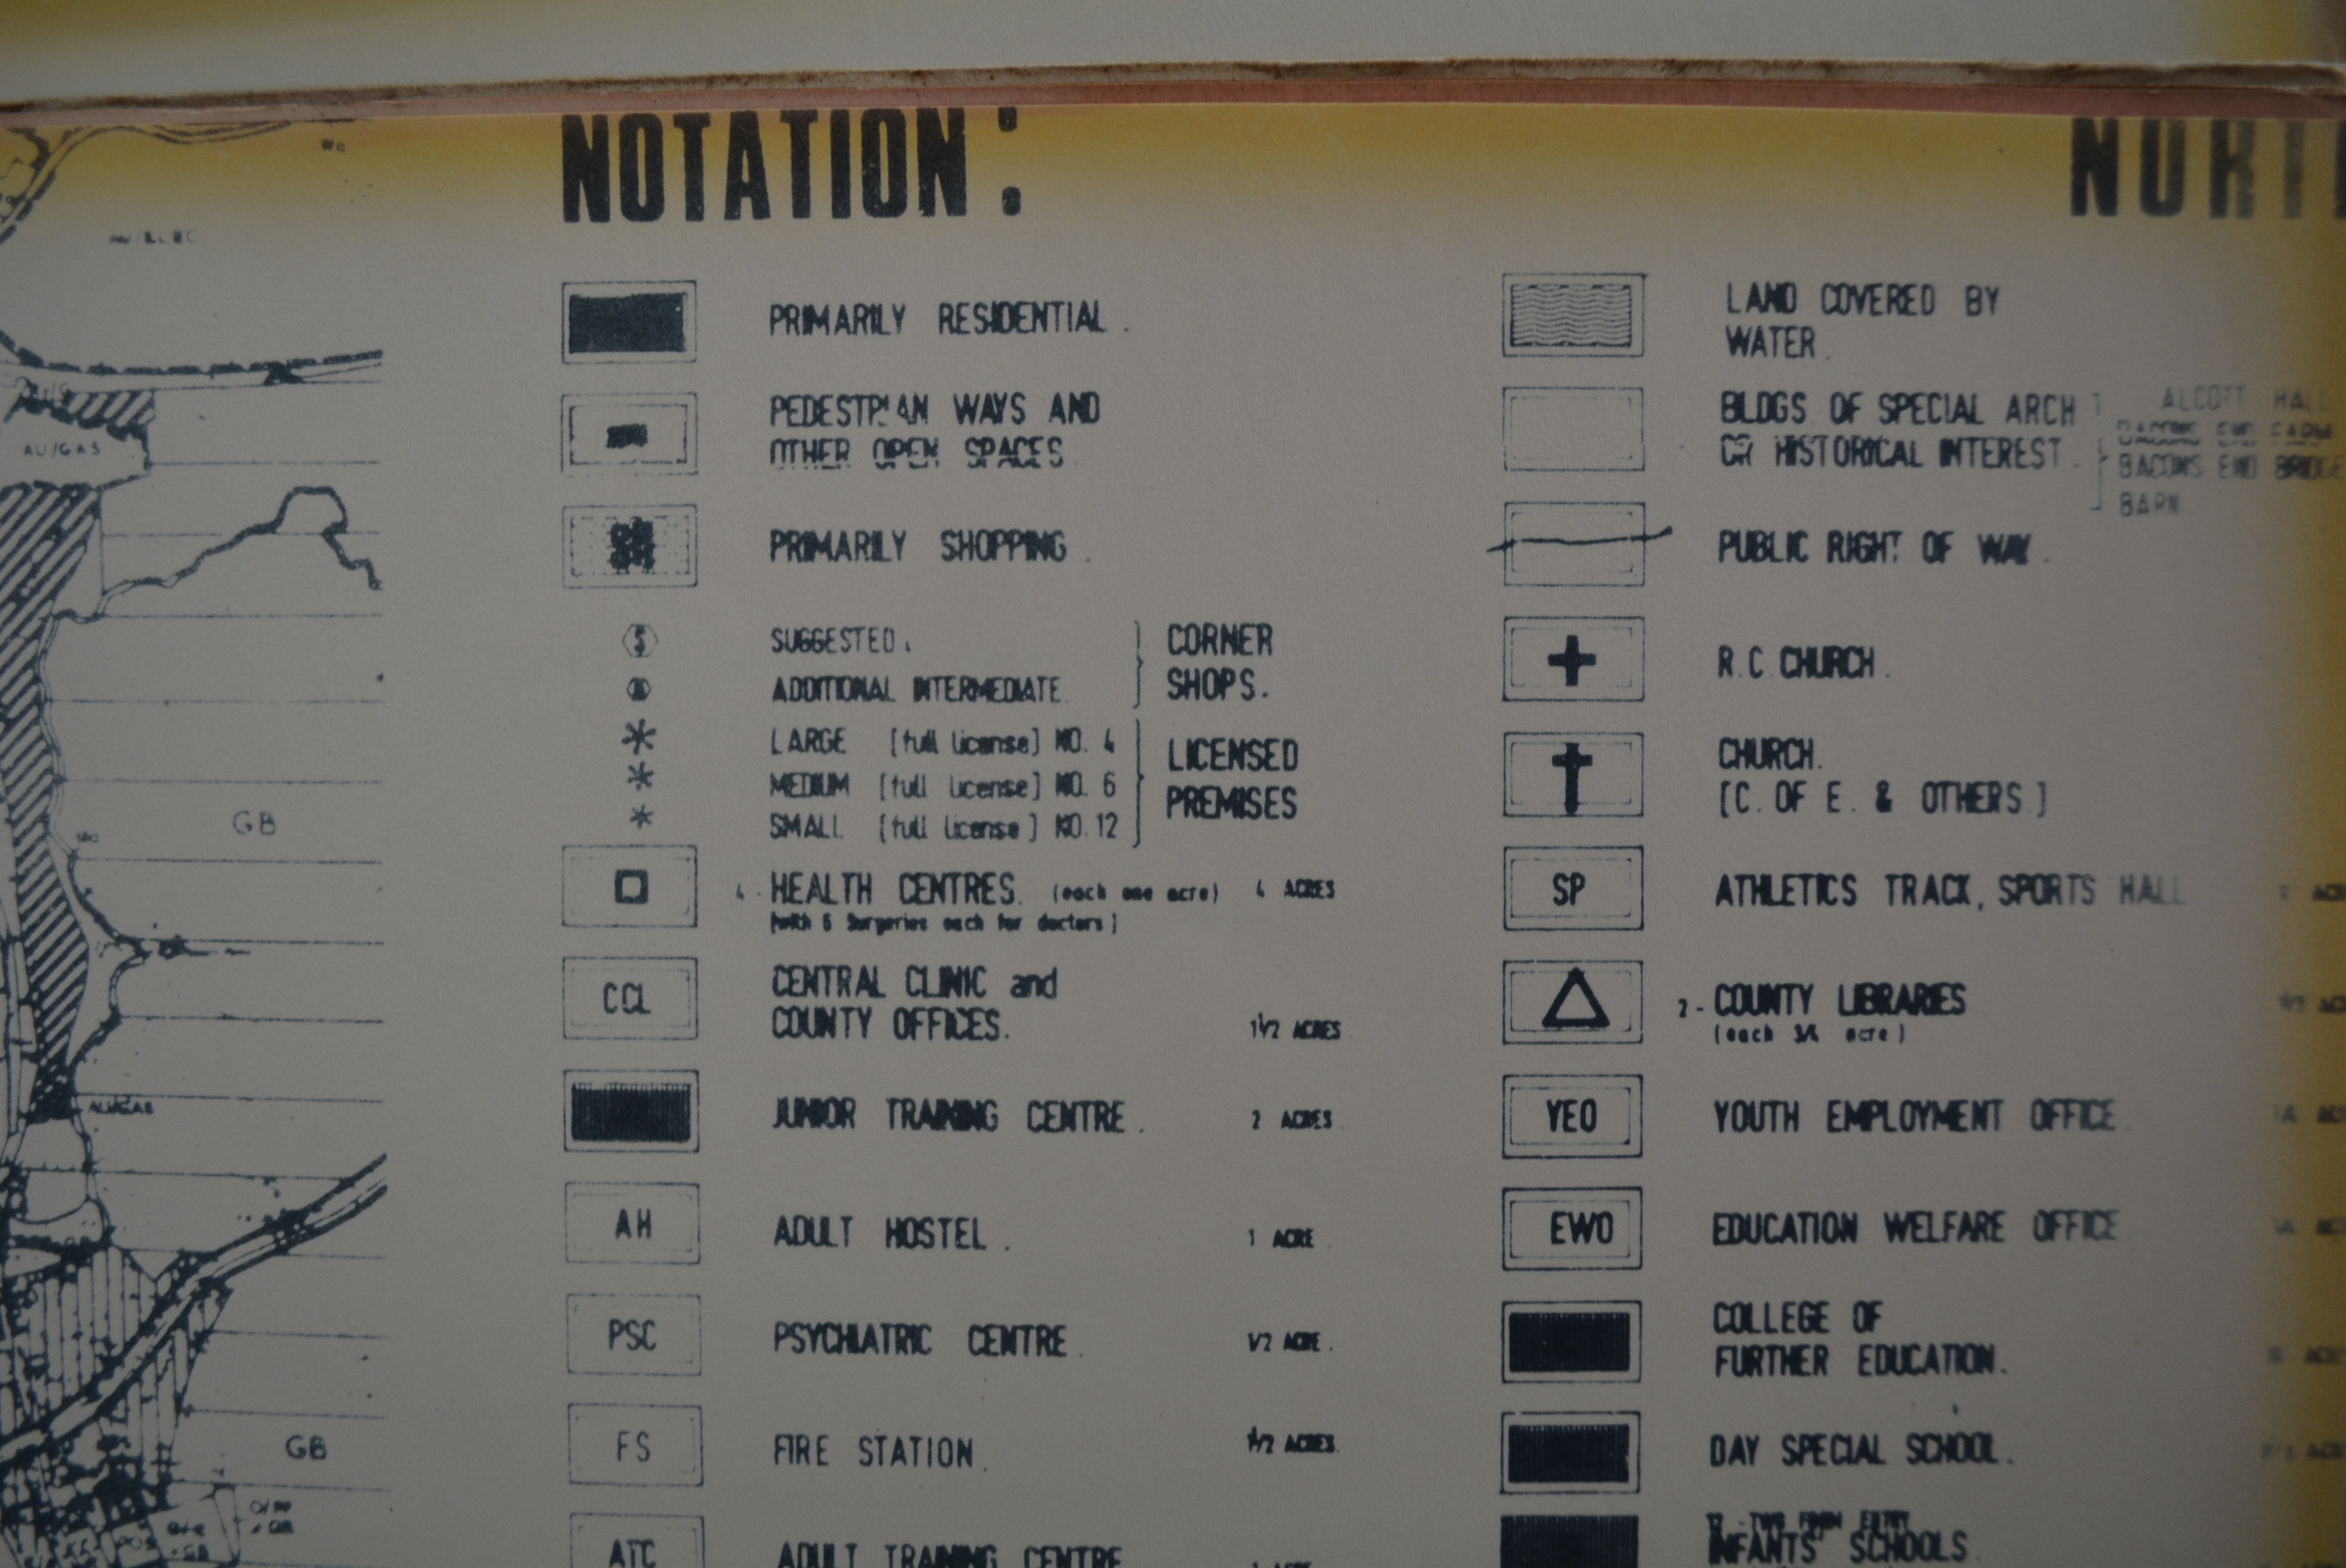 NOTATION:
PRIMARILY RESIDENTIAL.
PEDESTRIAN WAYS AND
OTHER OPEN SPACES
PRIMARILY SHOPPING.
S SUGGESTED.
ADDITIONAL INTERMEDIATE.
CORNER
SHOPS.
LARGE [full license] NO. 4
MEDIUM [full license] NO. 6
SMALL [full license] NO. 12
LICENSED
PREMISES
4 - HEALTH CENTRES. (each one acre) 4 ACRES
[with 6 Surgeries each for doctors]
CCL CENTRAL CLINIC and
COUNTY OFFICES. 1 1/2 ACRES
JUNIOR TRAINING CENTRE. 2 ACRES.
AH ADULT HOSTEL. 1 ACRE.
PSC PSYCHIATRIC CENTRE. 1/2 ACRE.
FS FIRE STATION. 1 1/2 ACRES.
ATC ADULT TRAINING CENTRE
LAND COVERED BY
WATER.
BLDGS OF SPECIAL ARCH
OR HISTORICAL INTEREST.
ALCOTT HALL
BACONS END FARM
BACONS END BRIDGE
BARN
PUBLIC RIGHT OF WAY.
R.C. CHURCH.
CHURCH.
[C. OF E. & OTHERS.]
SP ATHLETICS TRACK, SPORTS HALL
2 - COUNTY LIBRARIES
(each 3/4 acre)
YEO YOUTH EMPLOYMENT OFFICE.
EWO EDUCATION WELFARE OFFICE
COLLEGE OF
FURTHER EDUCATION.
DAY SPECIAL SCHOOL.
TWO FORM ENTRY
INFANTS' SCHOOLS.
AU/GAS
GB
AU/GAS
GB